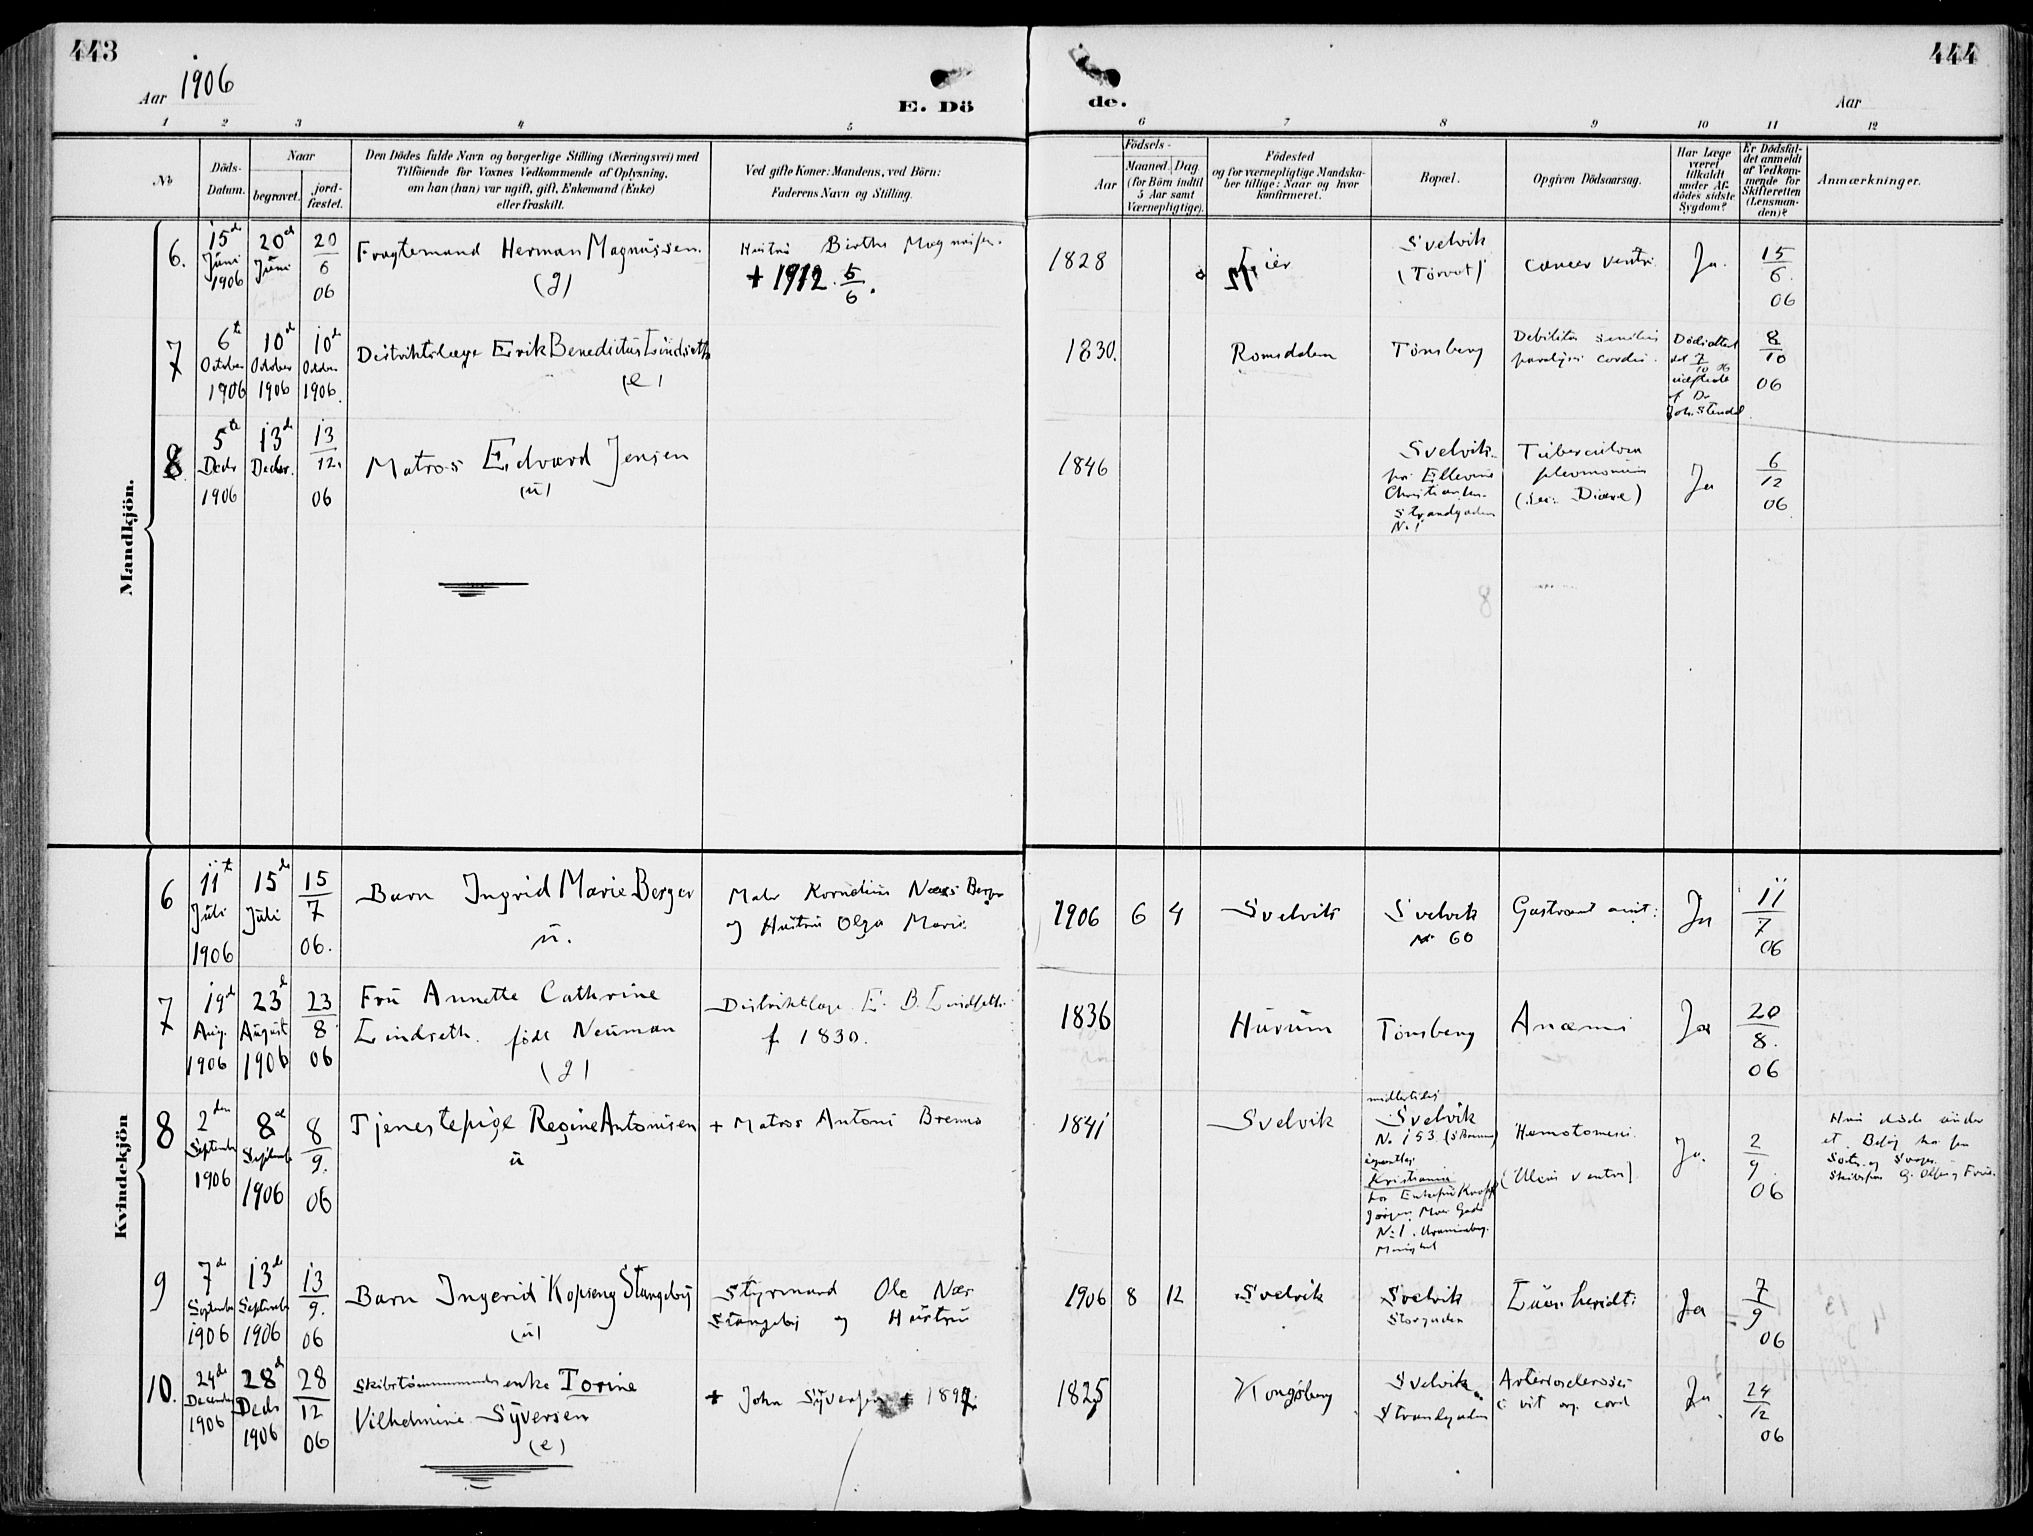 443
Aar 1906
E. Dö
1 2 3 4 5
No
Döds-
Datum.
Naar
begravet.
jord-
fæstet.
Den Dödes fulde Navn og borgerlige Stilling (Næringsvei) med
Tilföiende for Voxnes Vedkommende af Oplysning,
om han (hun) var ugift, gift, Enkemand (Enke)
eller fraskilt.
Ved gifte Koner: Mandens, ved Börn:
Faderens Navn og Stilling.
Mandkjön.
6.
15de
Juni
1906
20de
Juni
20
6
06
Fragtemand Herman Magnussen.
(g)
Hustru Birthe Magnussen.
+ 1912. 5
6.
7
6te
October
1906
10de
October
1906
10de
October
1906.
Distriktslæge Erik Benedictus Lindseth
(e)
8
5te
Decbr
1906
13de
Decbr.
13
12.
06
Matros Edvard Jensen
(u)
Kvindekjön
6
11te
Juli
1906
15de
Juli
15
7
06.
Barn Ingrid Marie Berger
u.
Maler Kornelius Næss Berger
og Hustru Olga Marie
7
19de
Aug.
1906
23de
August
1906
23
8
06
Fru Annette Cathrine
Lindseth. født Neuman
(g)
Distriktslæge E. B. Lindseth
f 1830.
8
2den
September
1906
8de
September
1906
8
9.
06
Tjenestepige Regine Antonisen
u
+ Matros Antoni Bremo
9
7de
September
1906
13de
September
1906
13
9.
06
Barn Ingerid Kopseng Stangeby
(u)
Styrmand Ole Nær
Stangeby og Hustru
10.
24de
December
1906
28de
Decbr
1906
28
12
06
Skibstømmermandsenke Torine
Vilhelmine Syversen
(e)
+ John Syversen + 189
444
de.
Aar
6 7 8 9 10 11 12
Aar
Födsels-
Maaned. Dag
(for Börn indtil
5 Aar samt
Værnepligtige).
Födested
og for værnepligtige Mandska-
ber tillige: Naar og hvor
konfirmeret.
Bopæl.
Opgiven Dödsaarsag.
Har Læge
været
tilkaldt
under Af-
dödes sidste
Sygdom?
Er Dödsfal-
det anmeldt
af Vedkom-
mende for
Skifteretten
(Lensman-
den)?
Anmærkninger.
1828
Lier
Svelvik
(Torvet)
Cancer ventri
Ja.
15
6.
06
1830.
Romsdalen
Tønsberg
Debilitas senilis
paralysis cordis.
Dødsattest
dat 7
10 06
udstedt
af Dr
Joh. Stendal
8
10
06
1846
Svelvik
Christiansen.
Strandgaden
No 1
Tuberculosa
(sec: Diare)
Ja
6
12
06
1906 6 4
Svelvik
Svelvik
No 60
Gastroent acut:
Ja
11
7
06
1836
Hurum
Tønsberg
Anæmi
Ja
20
8.
06
1841
Svelvik
midlertidig
Svelvik
No 153
egentlig
Kristiania
hos Enkefru
Jørgen Moes Gade
No 1. Uranienborg
Menighed
Hæmatemesi.
(Ulcus ventri)
Ja.
2
9
06
Hun døde under
et Besøg hos sin
Søster og Svoger
1906 8 12
Svelvik
Svelvik
Storgaden
Lues heridt:
Ja
7
9
06
1825
Kongsberg
Svelvik
Strandgaden
Arteriosclerosis
c. vit org. cord
Ja
24
12
06